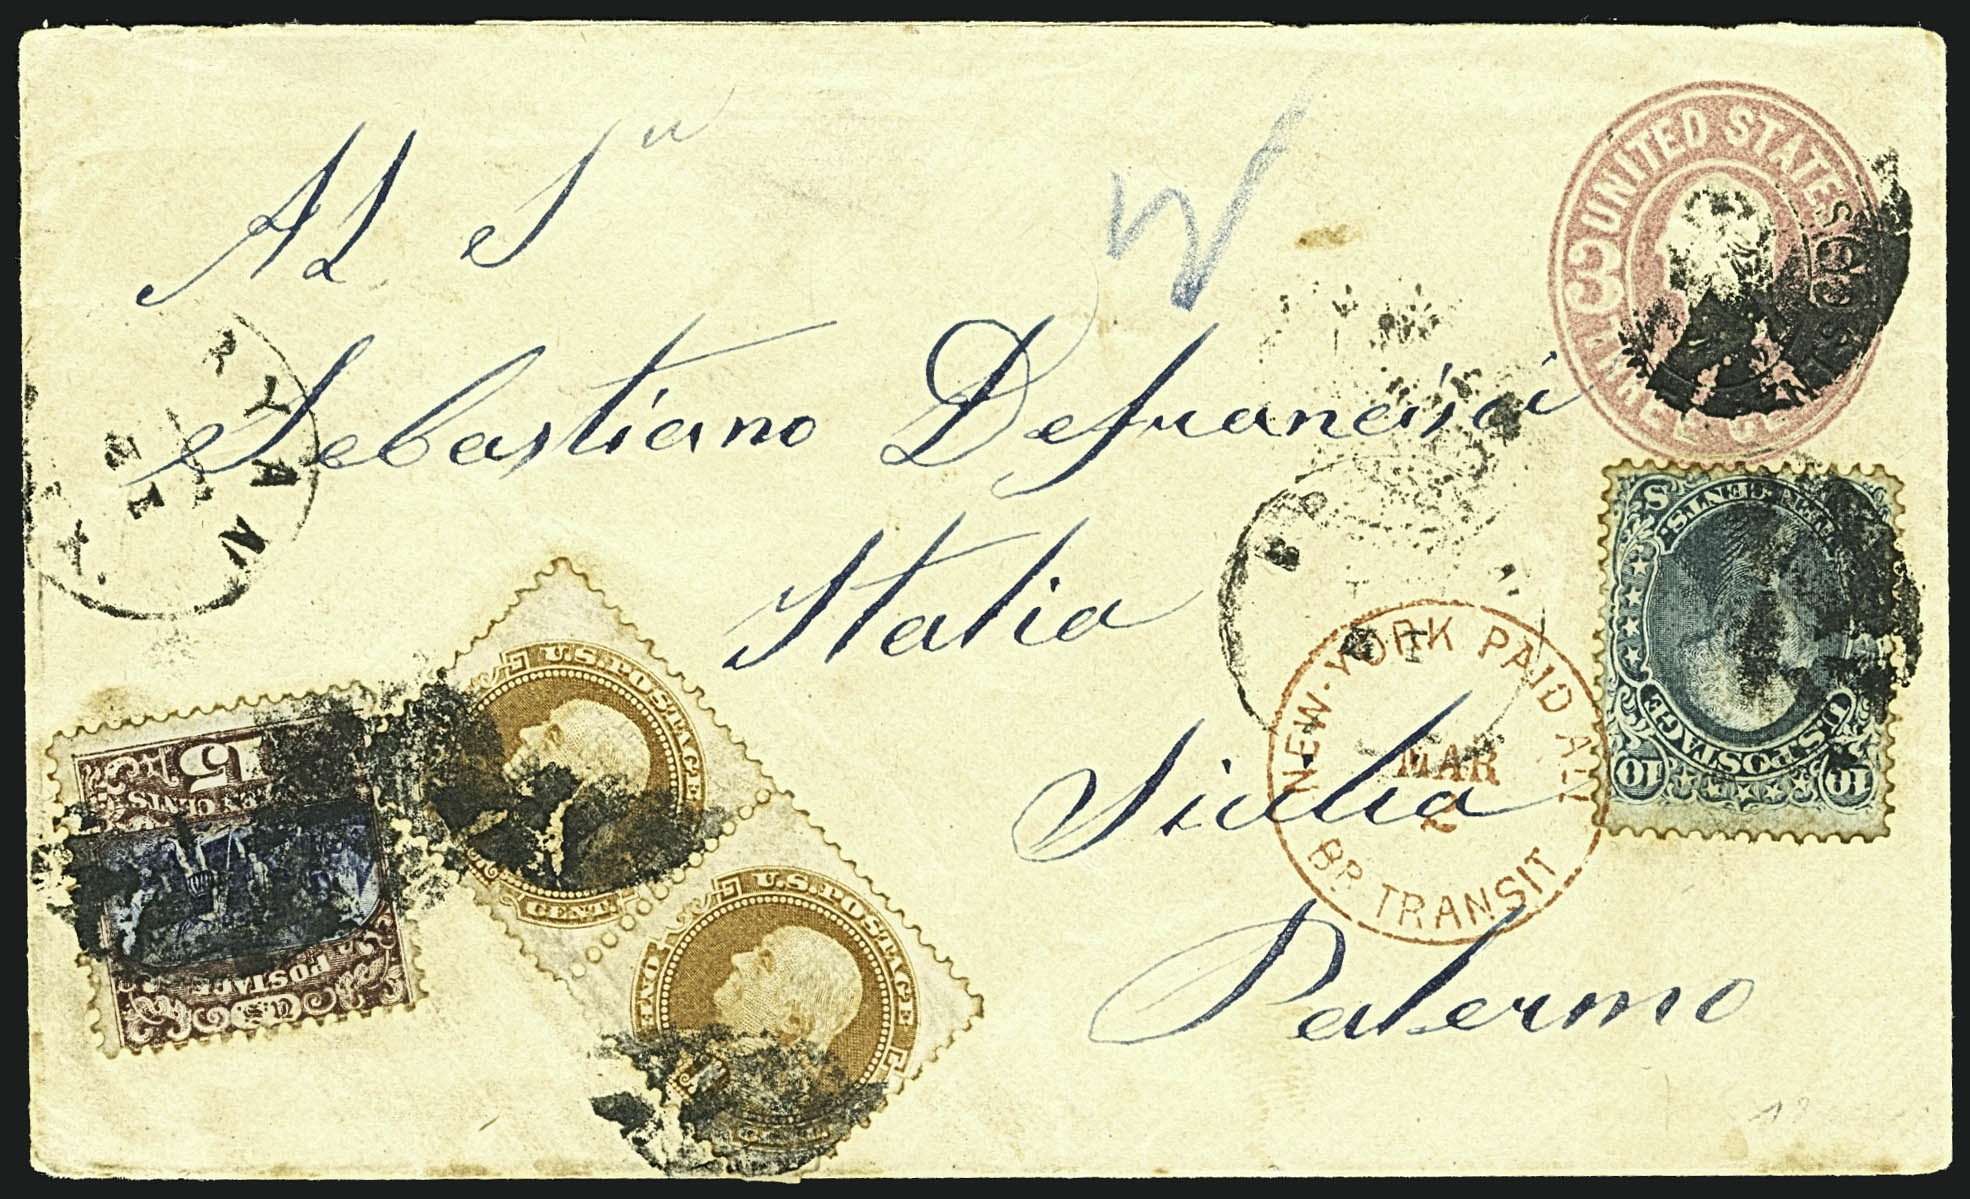 Al Sr
Sebastiano Defrancisci
Italia
Sicilia
Palermo
UNITED STATES
3
THREE CENTS
U.S. POSTAGE
10
10
TEN CENTS
NEW-YORK PAID ALL
MAR
2
BR. TRANSIT
15
CENTS
U.S. POSTAGE
U.S. POSTAGE
CENT.
U.S. POSTAGE
ONE
CENT.
RYAN